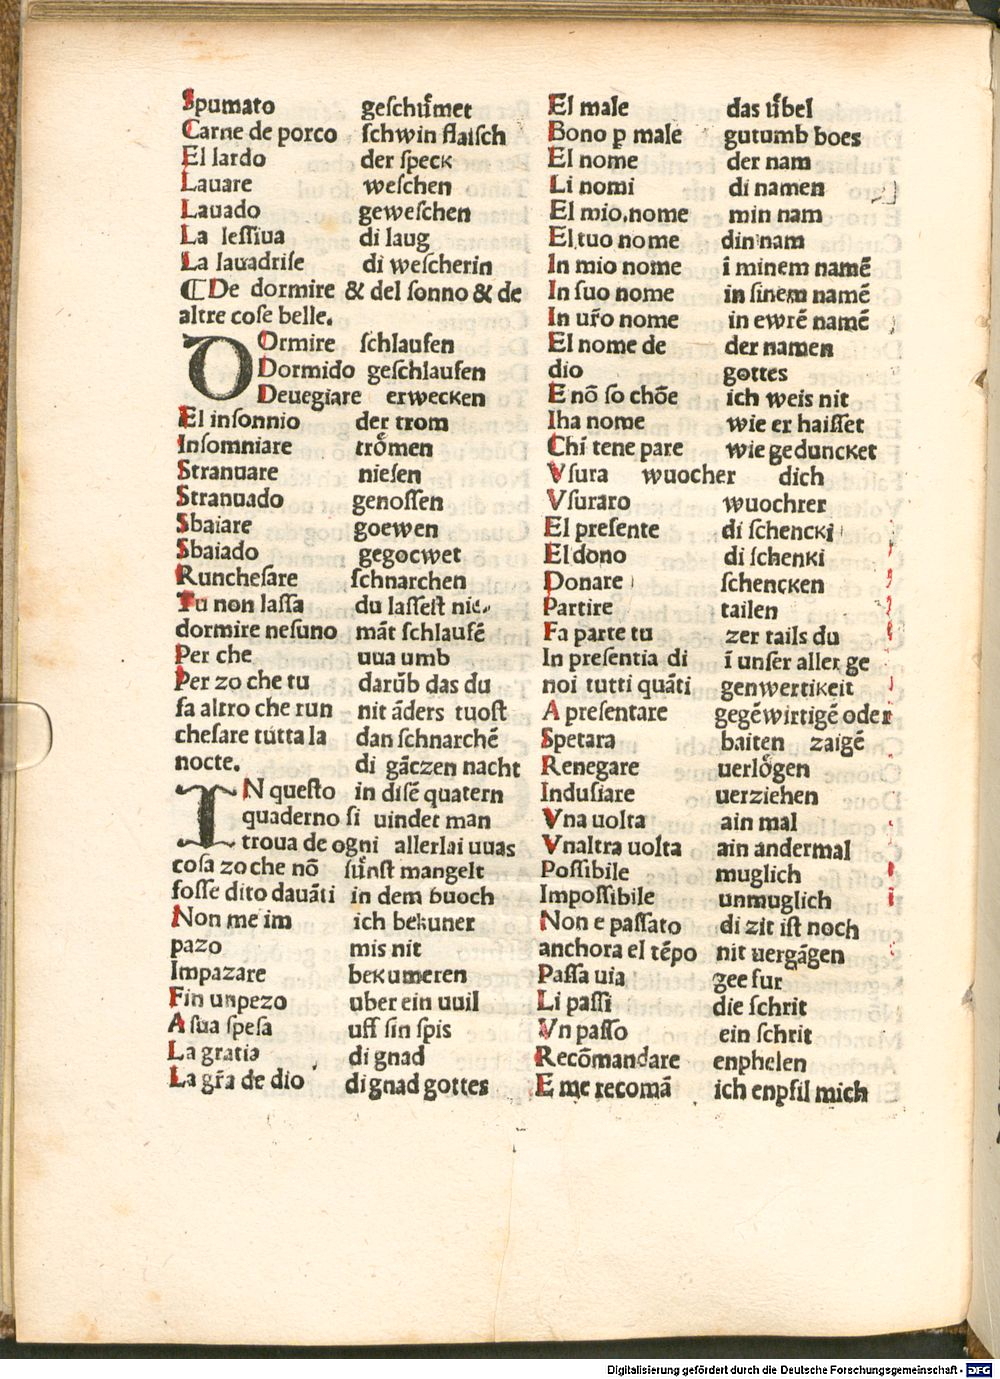 Spumato geschu̔met
Carne de porco schwin flaisch
El lardo der speck
Lauare weschen
Lauado geweschen
La lessiua di laug
La lauadrise di wescherin
⸿De dormire & del sonno & de
altre cose belle.
DOrmire schlaufen
Dormido geschlaufen
Deuegiare erwecken
El insonnio der trom
Insomniare trömen
Stranuare niesen
Stranuado genossen
Sbaiare goewen
Sbaiado gegoewet
Runchesare schnarchen
Tu non lassa du lassest
dormire nesuno māt schlafē
Per che uua umb
Per zo che tu darūb das du
fa altro che run nit āders tuost
chesare tutta la dan schnarchē
nocte. di gāczen nacht
IN questo in disē quatern
quaderno si uindet man
troua de ogni allerlai uuas
cosa zo che nō sünst mangelt
fosse dito dauāti in dem buoch
Non me im ich bekuner
pazo mis nit
Impazare bekumeren
Fin unpezo uber ein uuil
A sua spesa uff sin spis
La gratia di gnad
La gr̄a de dio di gnad gottes
El male das übel
Bono p male gutumb boes
El nome der nam
Li nomi di namen
El mio.nome min nam
El tuo nome din nam
In mio nome ī minem namē
In suo nome in sinem namē
In ur̄o nome in ewrē namē
El nome de der namen
dio gottes
E nō so chōe ich weis nit
Iha nome wie er haisset
Chi tene pare wie geduncket
Vsura wuocher dich
Vsuraro wuochrer
El presente di schencki
El dono di schenki
Donare schencken
Partire tailen
Fa parte tu zer tails du
In presentia di ī unser aller ge
noi tutti quāti genwertikeit
A presentare gegēwirtigē oder
Spetara baiten zaigē
Renegare uerlögen
Indusiare uerziehen
Vna uolta ain mal
Vnaltra uolta ain andermal
Possibile muglich
Impossibile unmuglich
Non e passato di zit ist noch
anchora el tēpo nit uergāgen
Passa uia gee fur
Li passi die schrit
Vn passo ein schrit
Recōmandare enphelen
E me recomā ich enpfil mich
Digitalisierung gefördert durch die Deutsche Forschungsgemeinschaft - DFG